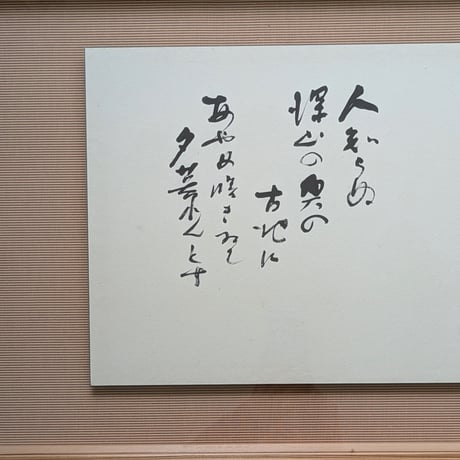 人知らぬ
深山の奥の
古池に
あやめ咲きゐて
夕暮れんとす